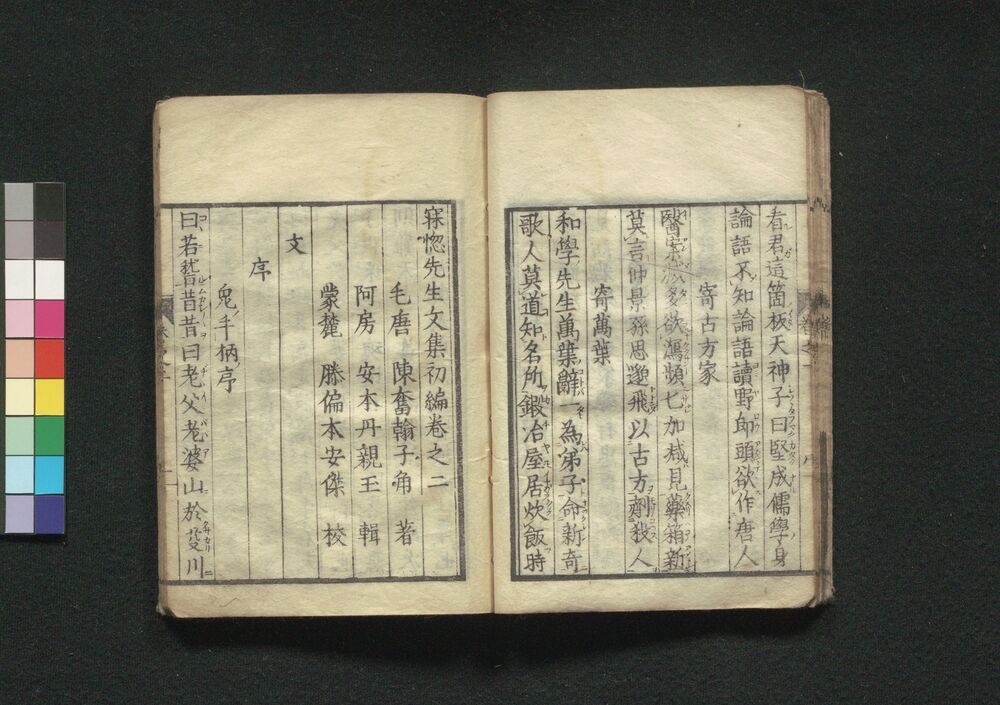 看君這箇板天神子曰堅成儒學身
論語不知論語讀野郎頭欲作唐人
寄古方家
醫案欲馮頻匕加減見藥箱新
莫言仲景孫思邈飛以古方劑殺人
寄萬葉
和學先生萬葉辭一為弟子命新奇
歌人莫道知名所鍛冶屋居炊飯時
寐惚先生文集初編卷之二
毛唐 陳奮翰子角 著
阿房 安本丹親王 輯
蒙麓 滕偏木安傑 校
文
序
兔手柄序
曰若昔昔曰老父老婆山於芟川